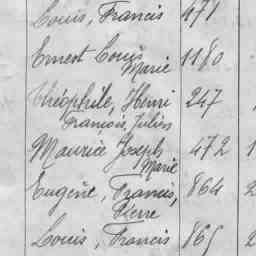 Louis, Francis 471
Ernest Louis 1180
Marie
Théophile, Henri 247
Francois, Julien
Maurice Joseph 472 1
Marie
Eugène, Francis, 864 2
Pierre
Louis, Francis 865 2